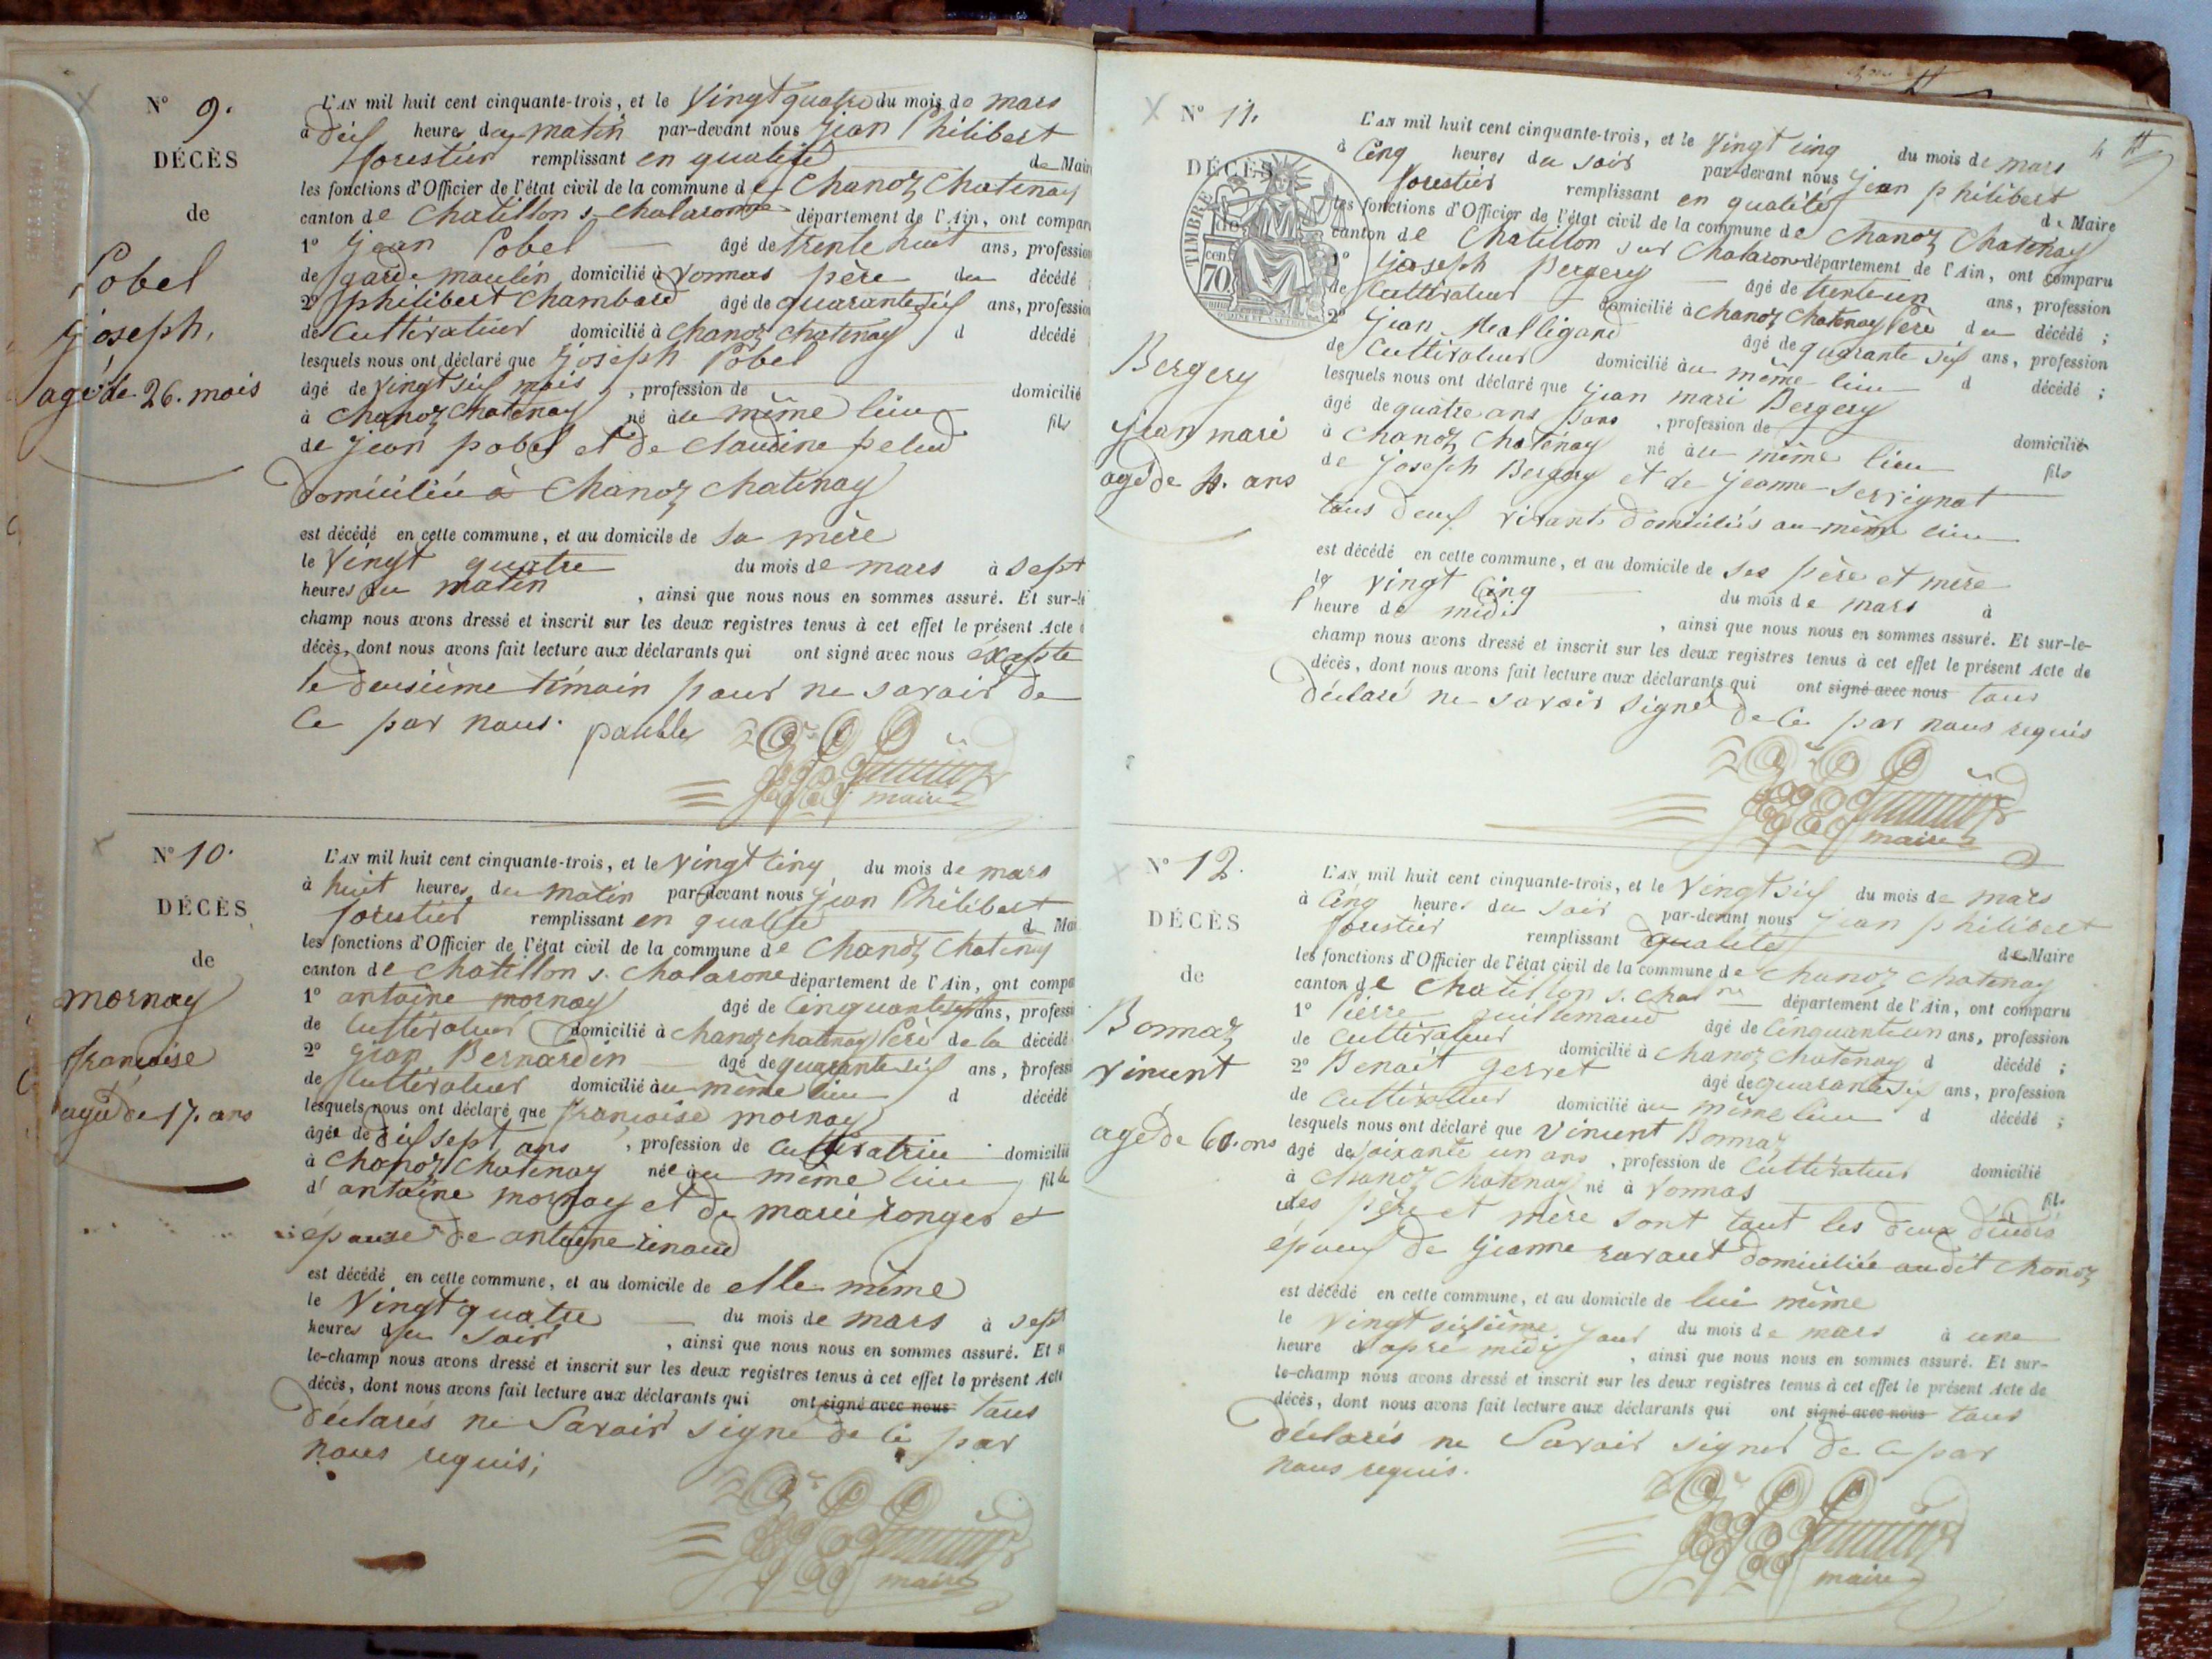 N° 9.
DÉCÈS
de
Pobel
joseph,
agé de 26. mois
L'AN mil huit cent cinquante-trois, et le Vingt quatre du mois de mars
à dix heures du matin par-devant nous jean Philibert
forestier remplissant en qualité de Maire
les fonctions d'Officier de l'état civil de la commune de Chanoz Chatenay
canton de Chatillon s. chalaronne département de l'Ain, ont compar
1° jean Pobel âgé de trente huit ans, profession
de garde moulin domicilié à vonnas père du décédé ;
2° philibert Chambard âgé de quarante six ans, profession
de Cultivateur domicilié à Chanoz chatenay d décédé
lesquels nous ont déclaré que joseph Pobel
âgé de vingt six mois , profession de domicilié
à Chanoz Chatenay né au même lieu fils
de jean pobel et de Claudine pelud
domiciliée à Chanoz chatenay
est décédé en cette commune, et au domicile de sa mère
le Vingt quatre du mois de mars à sept
heures du matin , ainsi que nous nous en sommes assuré. Et sur-le
champ nous avons dressé et inscrit sur les deux registres tenus à cet effet le présent Acte
décès, dont nous avons fait lecture aux déclarants qui ont signé avec nous excepte
le deusième témoin pour ne savoir de
Ce par nous.
maire
N° 10.
DÉCÈS
de
mornay
francoise
agée de 17. ans
L'AN mil huit cent cinquante-trois, et le Vingt Cinq du mois de mars
à huit heures du matin par-devant nous jean Philibert
forestier remplissant en qualité d Mai
les fonctions d'Officier de l'état civil de la commune de Chanoz Chatenay
canton de Chatillon s. Chalarone département de l'Ain, ont compa
1° antoine mornay âgé de Cinquante sept ans, professi
de Cultivateur domicilié à Chanoz chatenay Père de la décédé
2° jean Bernardin âgé de quarante six ans, professi
de Cultivateur domicilié au même lieu d décédé
lesquels nous ont déclaré que francoise mornay
âgée de dix sept ans , profession de Cultivatrice domicilié
à Chanoz Chatenay née au même lieu fille
d'antoine mornay et de marie ronger et
épouse de antoine renaud
est décédé en cette commune, et au domicile de elle même
le Vingt quatre du mois de mars à sept
heures du soir , ainsi que nous nous en sommes assuré. Et s
le-champ nous avons dressé et inscrit sur les deux registres tenus à cet effet le présent Acte
décès, dont nous avons fait lecture aux déclarants qui ont signé avec nous tous
déclarés ne Savoir signé de ce par
nous requis;
maire
4
N° 11.
DÉCÈS
de
TIMBRE
70.
Bergery
jean marie
agé de 4. ans
L'AN mil huit cent cinquante-trois, et le Vingt cinq du mois de mars
à Cinq heures du soir par-devant nous jean philibert
forestier remplissant en qualité de Maire
les fonctions d'Officier de l'état civil de la commune de Chanoz Chatenay
canton de Chatillon sur Chalaron département de l'Ain, ont comparu
1° joseph Bergery âgé de trente un ans, profession
de Cultivateur domicilié à Chanoz Chatenay Père du décédé ;
2° jean Mealligand âgé de quarante six ans, profession
de Cultivateur domicilié au même lieu d décédé ;
lesquels nous ont déclaré que jean mari Bergery
âgé de quatre ans sans , profession de domicilié
à Chanoz Chatenay né au même lieu fils
de joseph Bergery et de jeanne servignat
tous deux vivants domiciliés au même lieu
est décédé en cette commune, et au domicile de ses père et mère
le vingt Cinq du mois de mars à
l'heure de midi , ainsi que nous nous en sommes assuré. Et sur-le-
champ nous avons dressé et inscrit sur les deux registres tenus à cet effet le présent Acte de
décès, dont nous avons fait lecture aux déclarants qui ont signé avec nous tous
déclaré ne savoir signé de Ce par nous requis
maire
N° 12.
DÉCÈS
de
Bonnaz
vincent
agé de 61. ans
L'AN mil huit cent cinquante-trois, et le Vingt six du mois de mars
à Cinq heures du soir par-devant nous jean philibert
forestier remplissant qualité de Maire
les fonctions d'Officier de l'état civil de la commune de Chanoz Chatenay
canton de Chatillon s. Chal ne département de l'Ain, ont comparu
1° Pierre guillemaud âgé de Cinquante un ans, profession
de Cultivateur domicilié à Chanoz Chatenay d décédé ;
2° Benoit gerret âgé de quarante six ans, profession
de Cultivateur domicilié au même lieu d décédé ;
lesquels nous ont déclaré que Vincent Bonnaz
âgé de soixante un ans , profession de Cultivateur domicilié
à Chanoz Chatenay né à Vonnas fils
des père et mère sont tout les deux décédés
époux de jeanne ravaut domiciliée au dit Chanoz
est décédé en cette commune, et au domicile de lui même
le vingt sixième jour du mois de mars à une
heure d'aprè midi , ainsi que nous nous en sommes assuré. Et sur-
le-champ nous avons dressé et inscrit sur les deux registres tenus à cet effet le présent Acte de
décès, dont nous avons fait lecture aux déclarants qui ont signé avec nous tous
déclarés ne Savoir signer de Ce par
nous requis.
maire